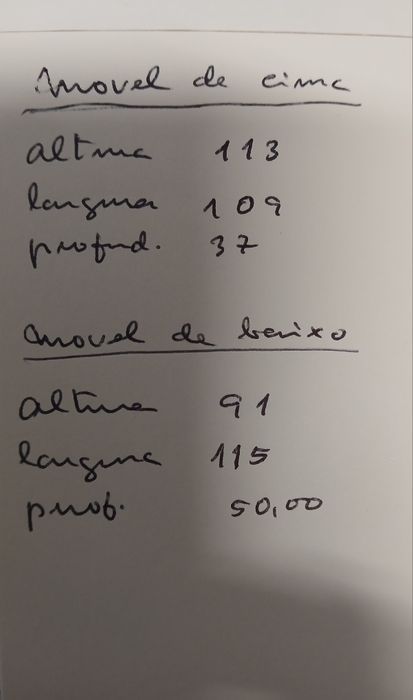 movel de cima
altura 113
largura 109
profund. 37
movel de baixo
altura 91
largura 115
prof. 50,00